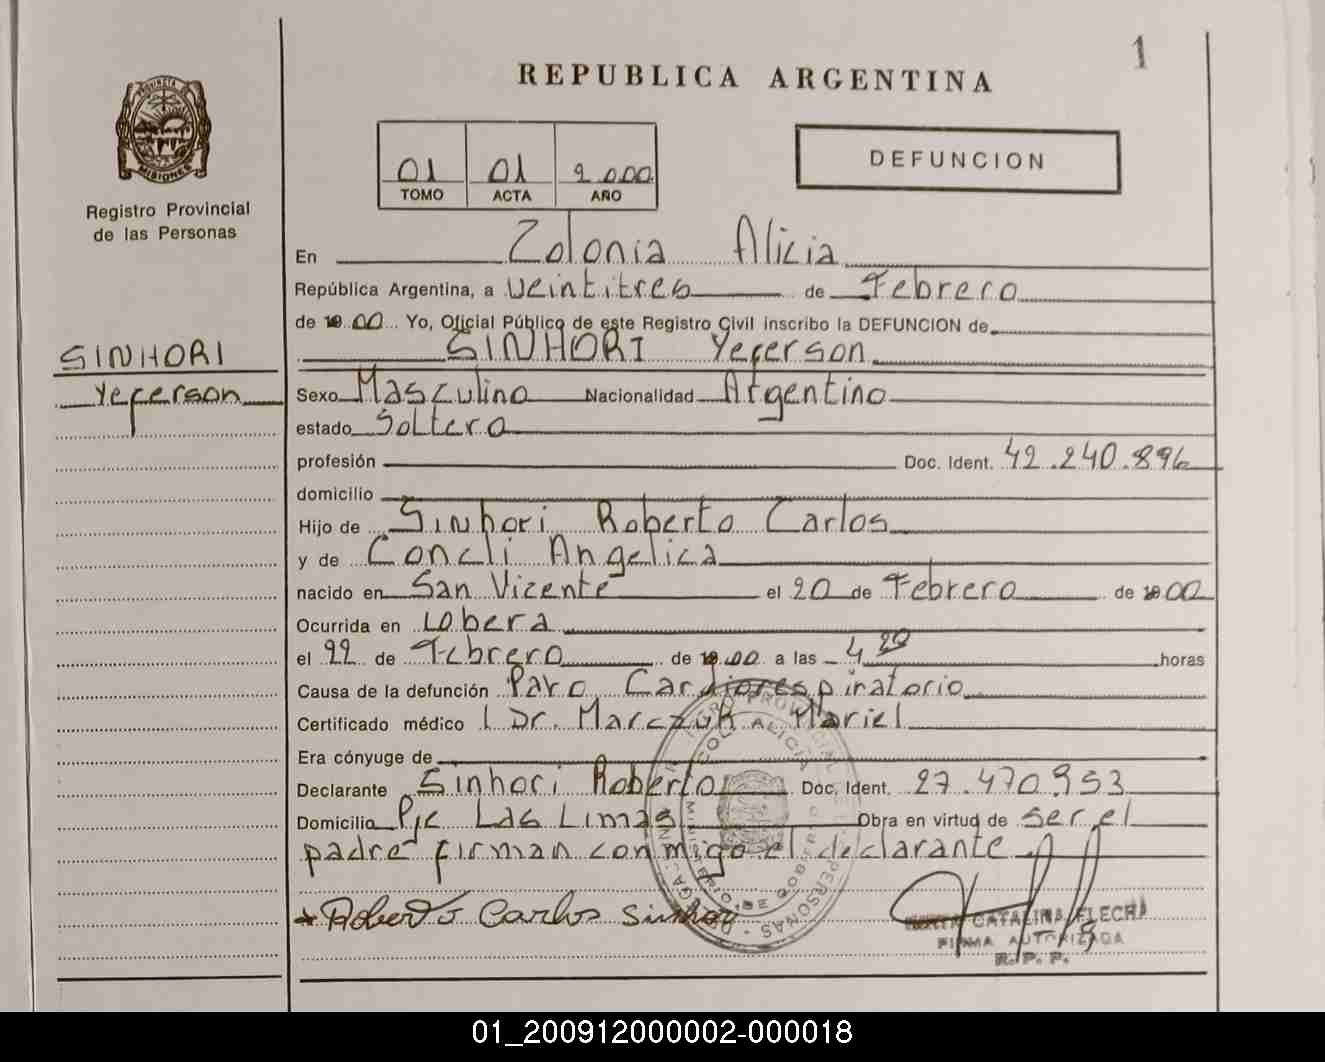 1
REPUBLICA ARGENTINA
PROVINCIA DE
MISIONES
Registro Provincial
de las Personas
01 01 2.000
TOMO ACTA AÑO
DEFUNCION
En Colonia Alicia
República Argentina, a veintitres de Febrero
de 00 Yo, Oficial Público de este Registro Civil inscribo la DEFUNCION de
SINHORI Yeferson
SINHORI
Yeferson
Sexo Masculino Nacionalidad Argentino
estado Soltero
profesión Doc. Ident. 42.240.896
domicilio
Hijo de Sinhori Roberto Carlos
y de Concli Angelica
nacido en San Vicente el 20 de Febrero de 00
Ocurrida en Lobera
el 22 de Febrero de 00 a las 4 20 horas
Causa de la defunción Paro Cardiorespiratorio
Certificado médico Dr. Marczuk Mariel
Era cónyuge de
Declarante Sinhori Roberto Doc. Ident. 27.470.953
Domicilio Pje Las Limas Obra en virtud de ser el
padre firman conmigo el declarante
Roberto Carlos Sinhori
CATALINA FLECH
FIRMA AUTORIZADA
R. P. P.
COL. ALICIA
MINISTERIO DE GOBIERNO
PERSONAS
01_200912000002-000018